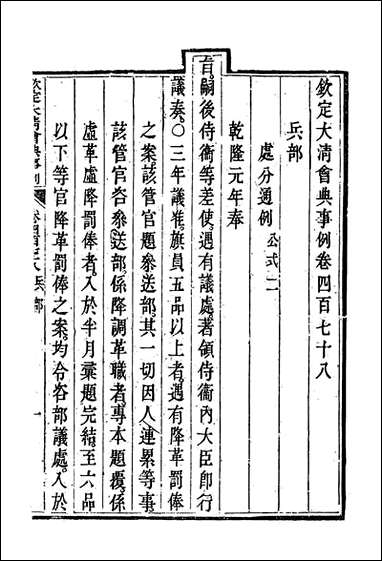 欽定大清會典事例卷四百七十八
兵部
處分通例 公式二
乾隆元年奉
旨嗣後侍衛等差使遇有議處著領侍衛內大臣卽行
議奏○三年議准旗員五品以上者遇有降革罰俸
之案該管官題參送部其一切因人連累等事
該管官咨參送部係降調革職者專本題覆係
虛革虛降罰俸者入於半月彙題完結至六品
以下等官降革罰俸之案均令咨部議處入於
欽定大清會典事例
卷四百七十八 兵部
一